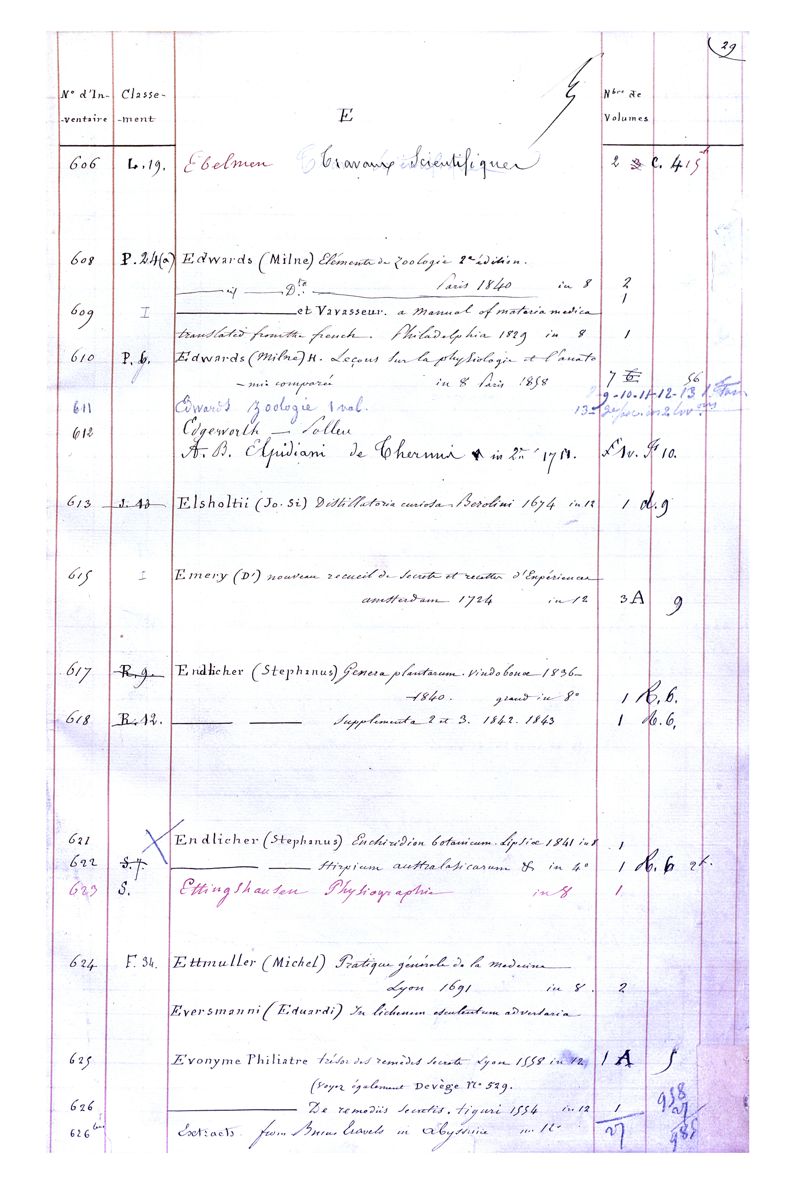 29
N° d'In- Classe- E Nbre de
-ventaire -ment Volumes
606 L.19. Ebelmen Travaux Scientifiques 2 C. 415
608 P.24(a) Edwards (Milne) Eléments de Zoologie 2e édition.
Dto Paris 1840 in 8 2
1
609 I et Vavasseur. a Manual of materia medica
translated from the french. Philadelphia 1829 in 8 1
610 P.6. Edwards (Milne) H. Leçons sur la physiologie et l'anato
-mie comparée in 8 Paris 1858 7 6 56
9-10-11-12-13
611 Edwards Zoologie 1 vol.
612 Edgeworth
A. B. Elpidiani de Thermis in 2 1711. 1v. F 10.
613 J. 13 Elsholtii (Jo. Si) Distillatoria curiosa Berolini 1674 in 12 1 d. 9
615 I Emery (Dr) nouveau recueil de secrets et recettes d'Expériences
amsterdam 1724 in 12 3 A 9
617 R.9. Endlicher (Stephanus) Genera plantarum. vindobonæ 1836-
-1840. grand in 8° 1 R.6.
618 R.12. Supplementa 2 et 3. 1842. 1843 1 R.6.
621 Endlicher (Stephanus) Enchiridion botanicum. Lipsiæ 1841 in 8 1
622 S.7. Stirpium australasicarum & in 4° 1 R.6
623 S. Ettingshausen Physiographie in 8 1
624 F.34. Ettmuller (Michel) Pratique générale de la medecine
Lyon 1691 in 8. 2
Eversmanni (Eduardi) In lichenum esculentum adversaria
625 Evonyme Philiatre trésor des remèdes secrets Lyon 1558 in 12 1 A 5
(voyez également Devège N° 529.
626 De remediis secretis. tiguri 1554 in 12 1 958
27
626 bis Extracts from Bruces travels in Abyssinie in 12° 27 985